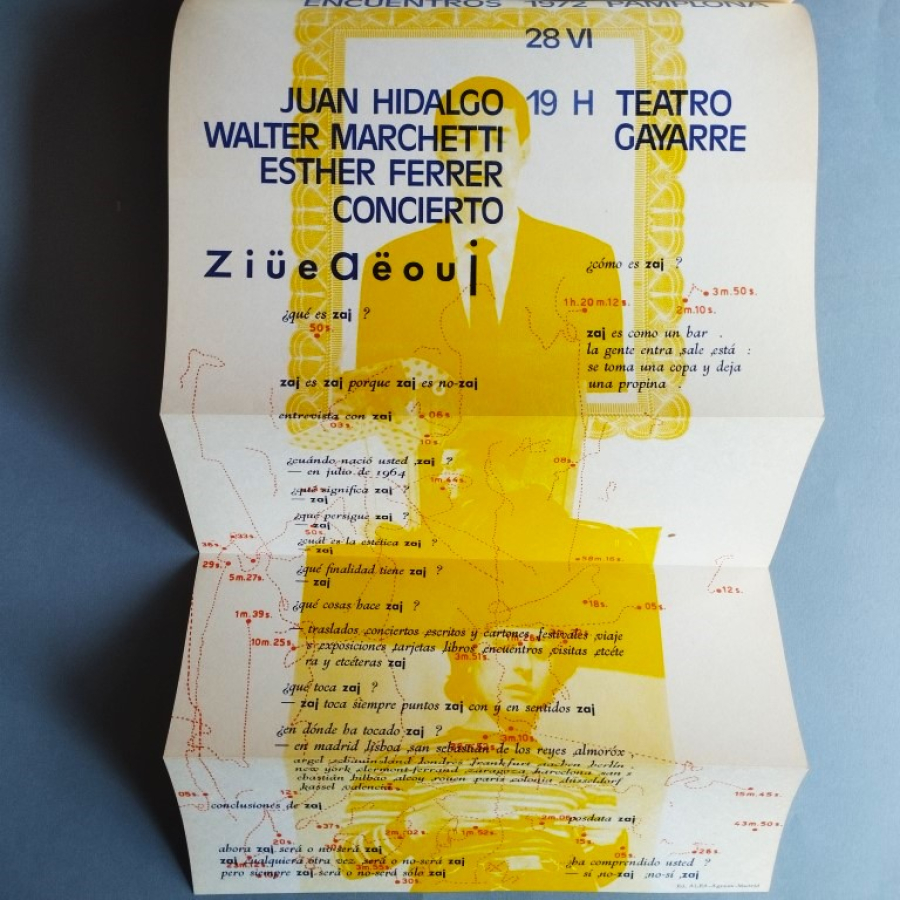 ENCUENTROS 1972 PAMPLONA
28 VI
JUAN HIDALGO 19 H TEATRO
WALTER MARCHETTI GAYARRE
ESTHER FERRER
CONCIERTO
Ziüeaëouj
¿cómo es zaj ?
3m.50s.
1h.20m.12s.
2m.10s.
¿qué es zaj ?
50s.
zaj es como un bar .
la gente entra sale está :
se toma una copa y deja
una propina .
zaj es zaj porque zaj es no-zaj
entrevista con zaj
06s.
03s.
10s.
¿cuándo nació usted zaj ?
— en julio de 1964
08s.
1m.44s.
¿qué significa zaj ?
— zaj
¿qué persigue zaj ?
— zaj
50s.
¿cuál es la estética zaj ?
— zaj
33s.
36s.
29s.
58m.16s.
¿qué finalidad tiene zaj ?
— zaj
5m.27s.
12s.
¿qué cosas hace zaj ?
18s.
05s.
1m.39s.
— traslados conciertos escritos y cartones festivales viaje
10m.25s.
s exposiciones tarjetas libros encuentros visitas etcéte
3m.51s.
ra y etcéteras zaj
¿qué toca zaj ?
— zaj toca siempre puntos zaj con y en sentidos zaj
¿en dónde ha tocado zaj ?
3m.10s.
— en madrid lisboa san sebastián de los reyes almoróx
argel londres frankfurt aachen berlín
new york clermont-ferrand zaragoza barcelona san s
ebastián bilbao alcoy rouen parís colonia düsseldorf
kassel valencia
05s.
12s.
15m.45s.
conclusiones de zaj
posdata zaj
2m.05s.
37s.
2m.02s.
1m.52s.
43m.50s.
20s.
15s.
ahora zaj será o no-será zaj
05s.
26s.
zaj cualquiera otra vez será o no-será zaj
¿ha comprendido usted ?
pero siempre zaj será o no-será sólo zaj
— sí no-zaj no-sí zaj
30s.